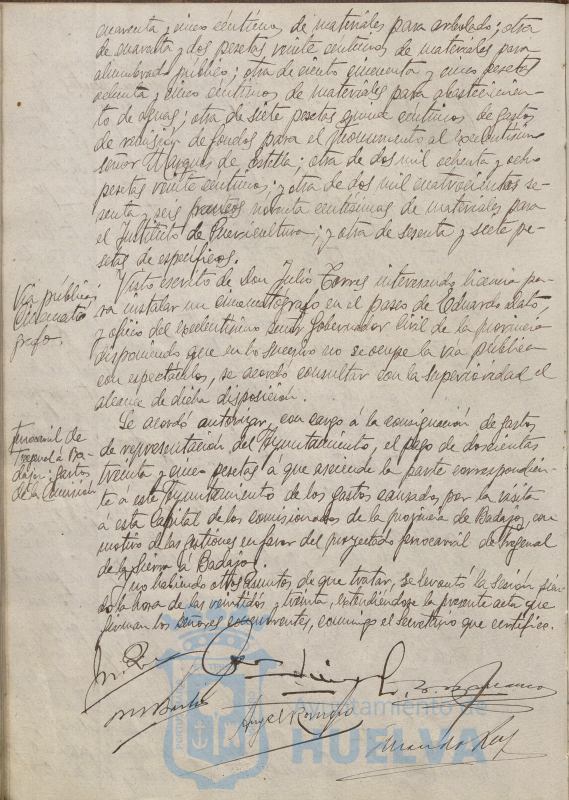 cuarenta y cinco centimos de materiales para arbolado; otra
de cuarenta y dos pesetas veinte centimos de materiales para
alumbrado público; otra de ciento cincuenta y cinco pesetas
ochenta y cinco centimos de materiales para abastecimien-
to de aguas; otra de siete pesetas quince centimos de gastos
de remisión de fondos para el Monumento al excelentísimo
señor Marques de Estella; otra de dos mil ochenta y ocho
pesetas veinte centimos; y otra de dos mil cuatrocientas se-
senta y seis francos noventa centesimas de materiales para
el Instituto de Puericultura; y otra de sesenta y siete pe-
setas de especificos.
Via pública
Cinemató
grafo.
Visto escrito de Don Julio Torres interesando licencia pa-
ra instalar un cinematógrafo en el paseo de Eduardo Dato,
y oficio del excelentísimo Señor Gobernador Civil de la provincia
disponiendo que en lo sucesivo no se ocupe la vía pública
con espectáculos, se acordó consultar con la superioridad el
alcance de dicha disposición.
Ferrocarril de
Fregenal á Ba-
dajoz: gastos
de la Comisión
Se acordó autorizar, con cargo á la consignación de gastos
de representación del Ayuntamiento, el pago de doscientas
treinta y cinco pesetas á que asciende la parte correspondien-
te á este Ayuntamiento de los gastos causados por la visita
á esta Capital de los comisionados de la provincia de Badajoz con
motivo de las gestiones en favor del proyectado ferrocarril de Fregenal
de la Sierra á Badajoz.
Y no habiendo otros asuntos de que tratar, se levantó la sesión sien-
do la hora de las veintidós y treinta, extendiéndose la presente acta que
firman los señores concurrentes, conmigo el secretario que certifico.
Angel
Ayuntamiento de
HUELVA